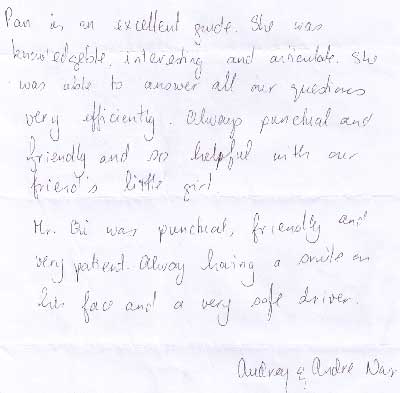 Pan is an excellent guide. She was
knowledgeble, interesting and articulate. She
was able to answer all our questions
very efficiently. Always punctual and
friendly and so helpful with our
friend's little girl
Mr. Bi was punctual, friendly and
very patient. Alway having a smile on
his face and a very safe driver.
Audrey & Andre